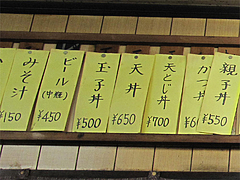 みそ汁
150
ビール
(中瓶)
¥450
玉子丼
¥500
天丼
¥650
天とじ丼
¥700
かつ丼
¥6
親子丼
¥550